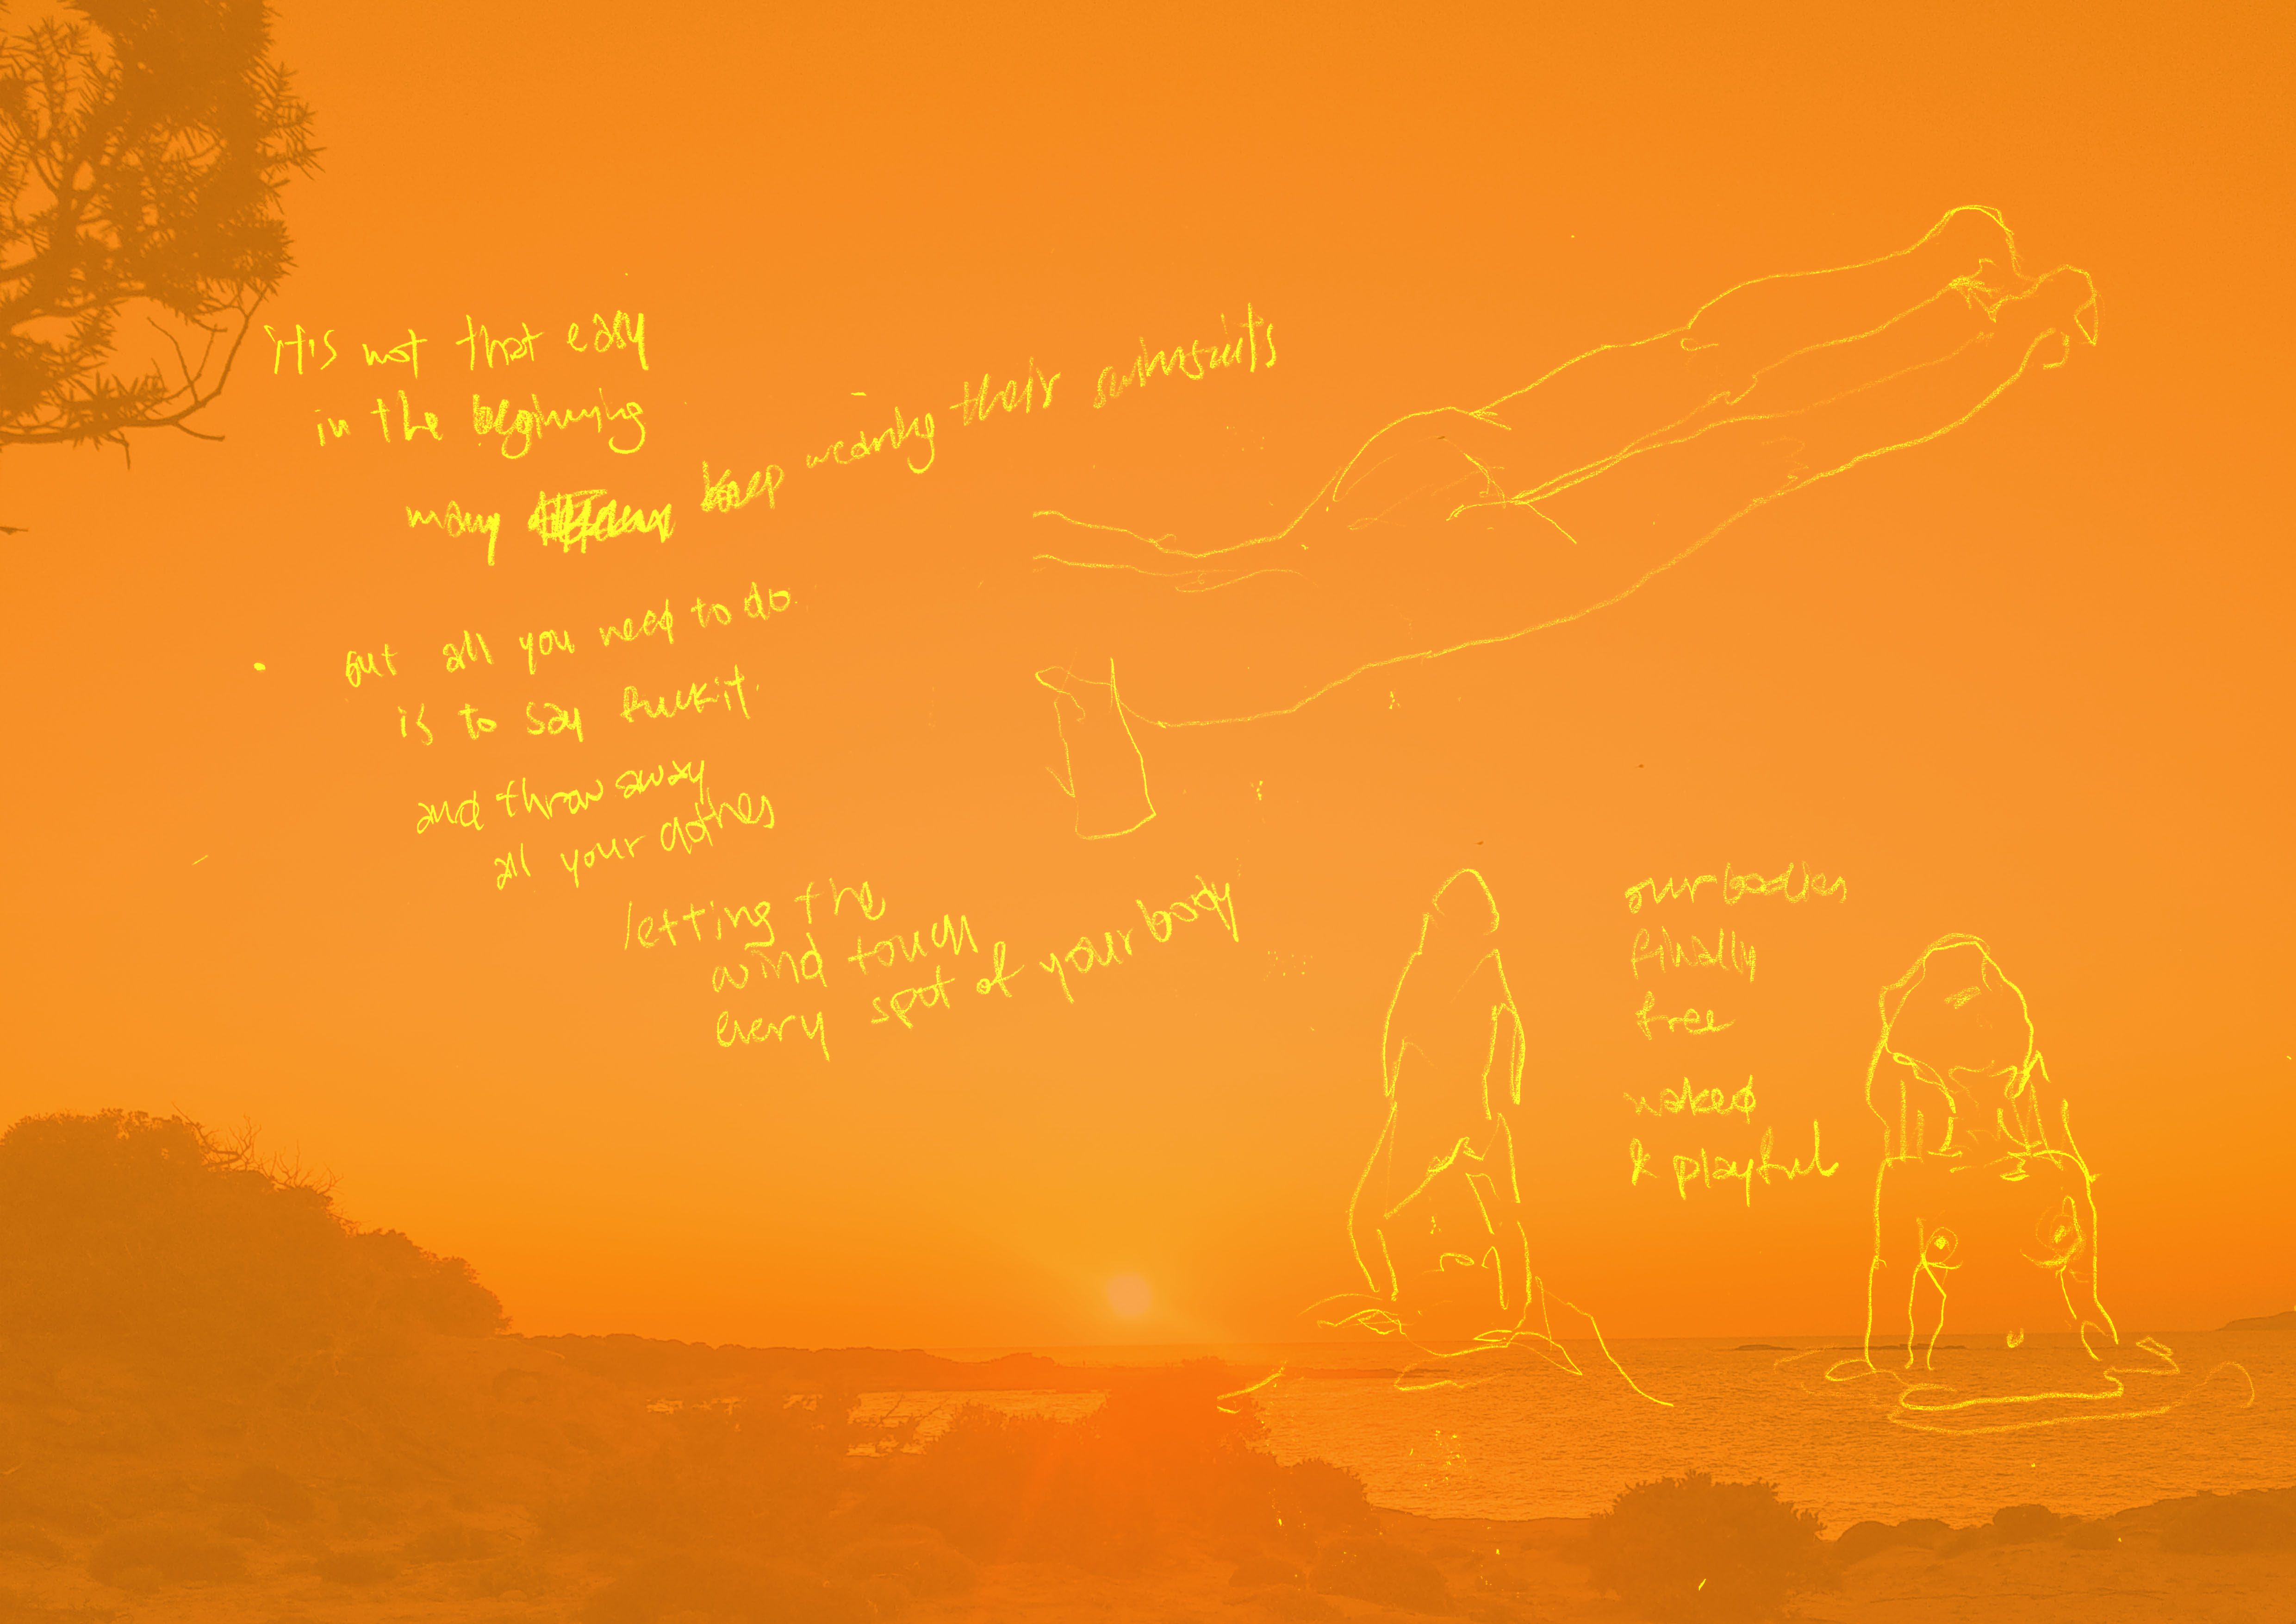 it's not that easy
in the beginning
many keep wearing their swimsuits
but all you need to do
is to say fuck it.
and throw away
all your clothes
letting the
wind touch
every spot of your body
our bodies
finally
free
naked
& playful